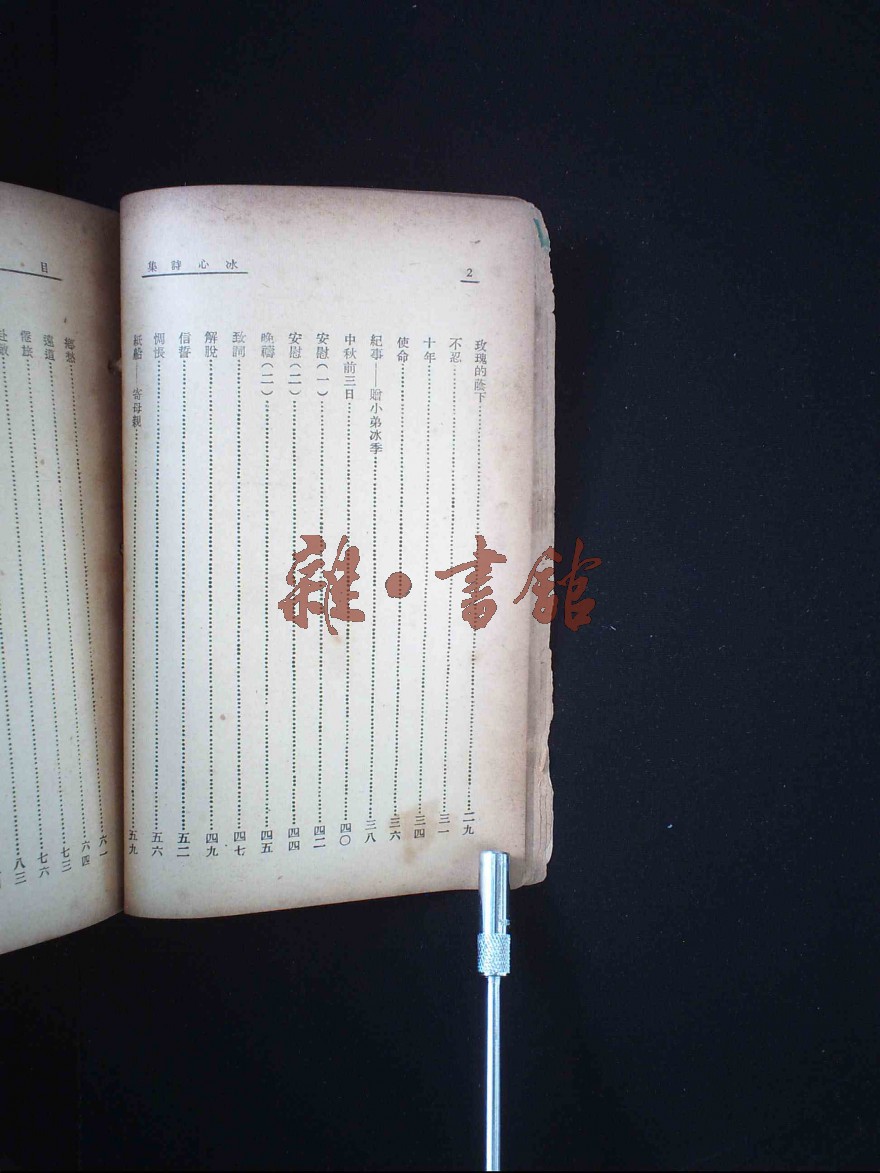 冰心詩集
2
玫瑰的蔭下 二九
不忍 三一
十年 三四
使命 三六
紀事——贈小弟冰季 三八
中秋前三日 四〇
安慰(一) 四二
安慰(二) 四四
晚禱(二) 四五
致詞 四七
解脫 四九
信誓 五二
惆悵 五六
紙船——寄母親 五九
目
鄉愁 六一
遠道 六四
倦旅 七三
赴敵 七六
八三
雜·書館